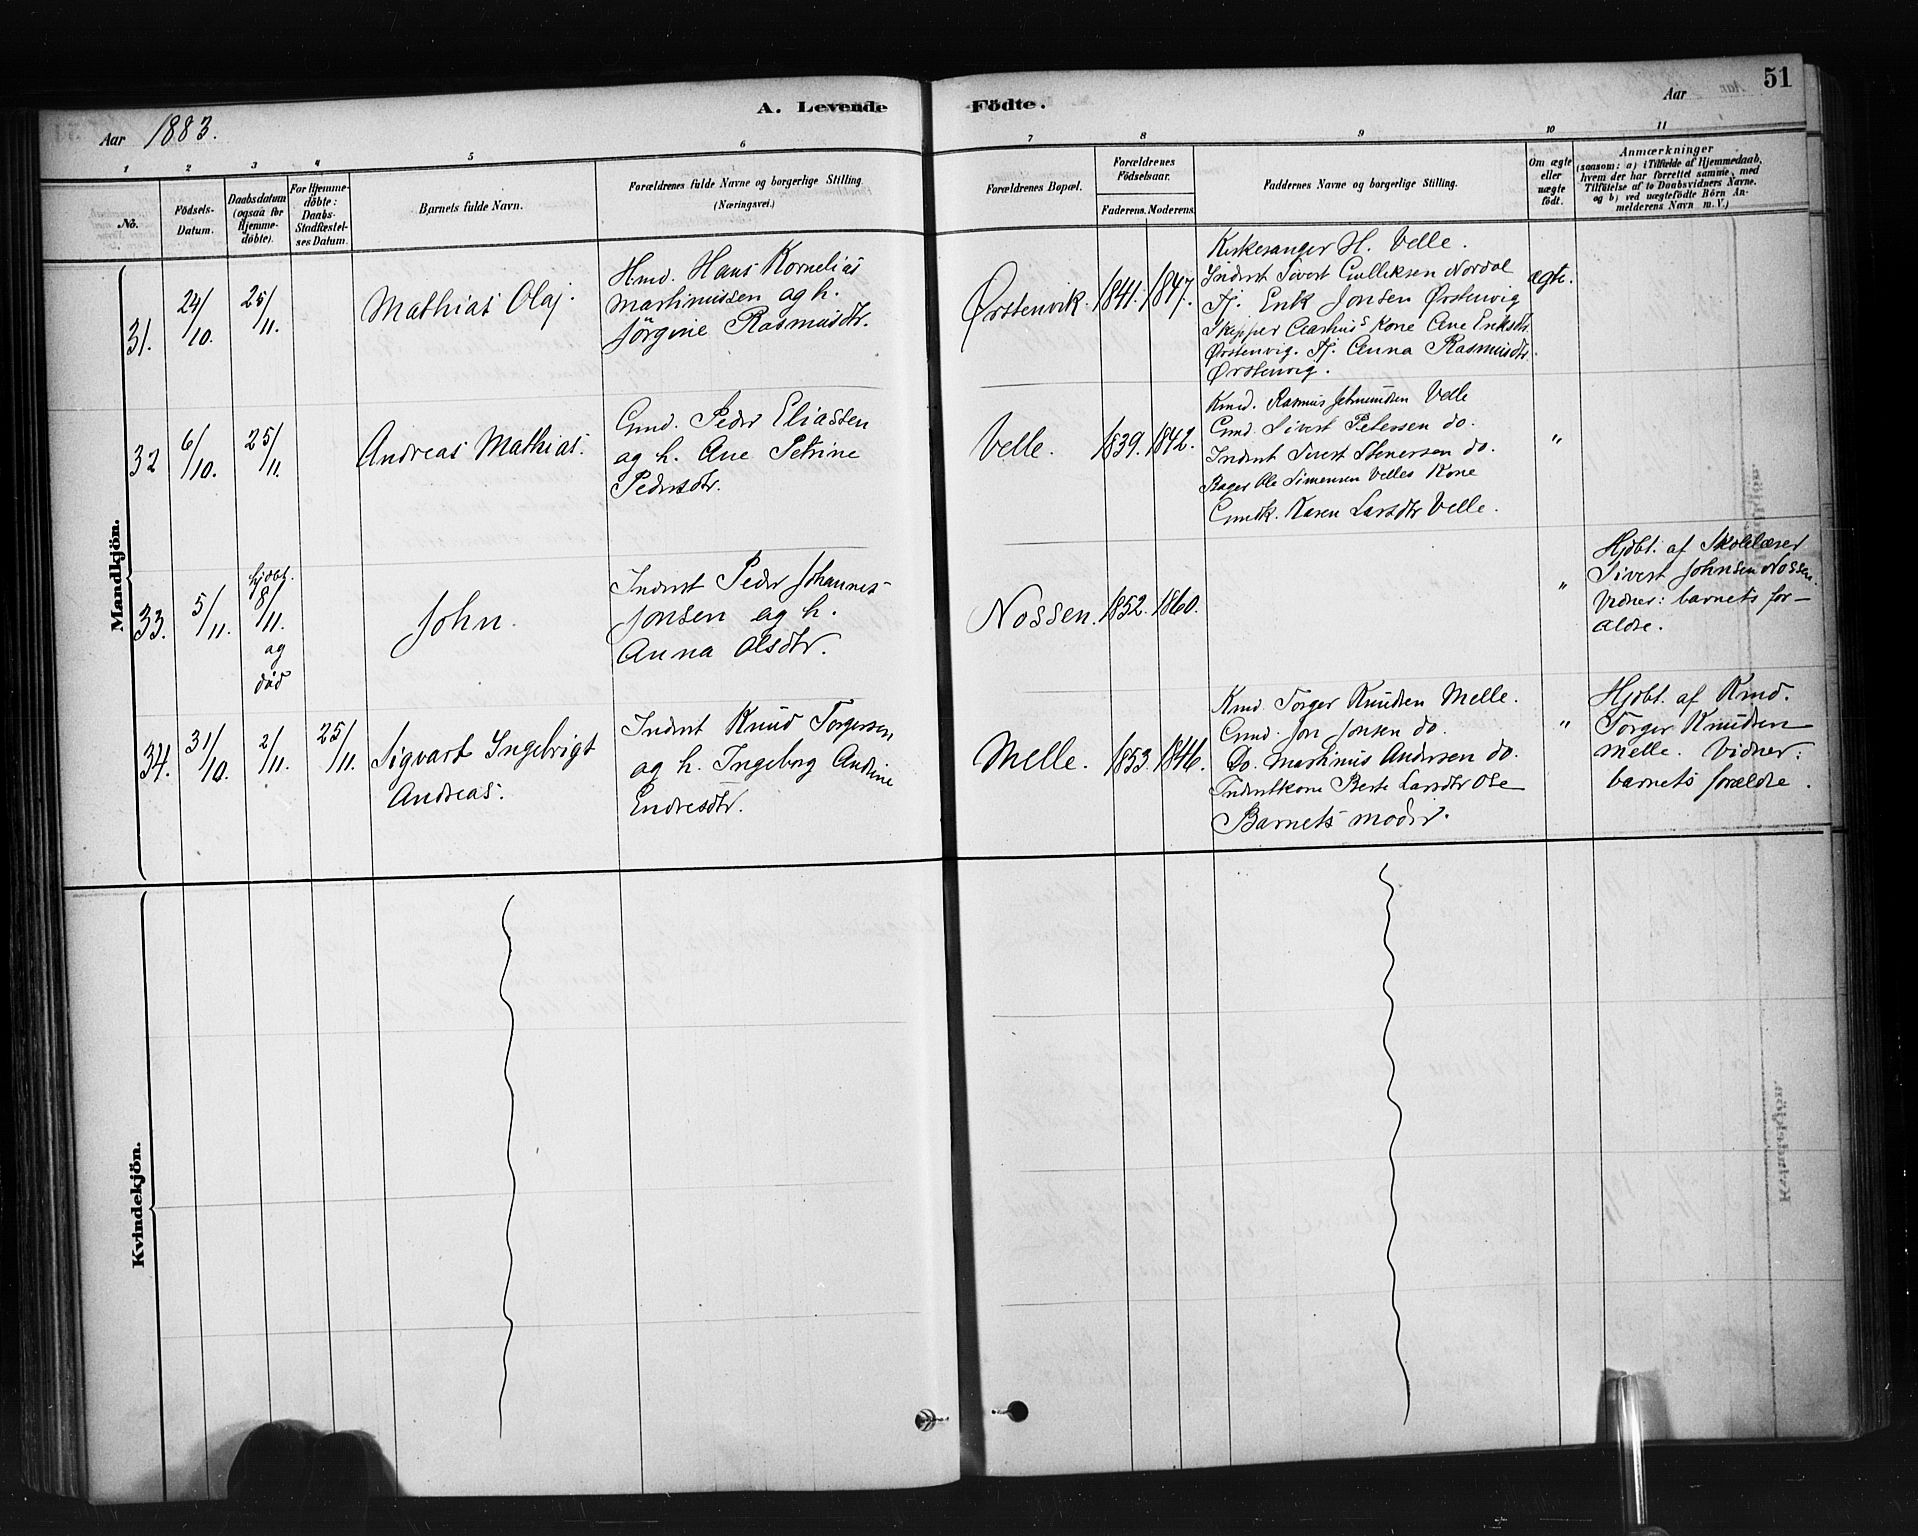 A. Levende Födte.
51
Aar 1883.
Aar
1 2 3 4 5 6 7 8 9 10 11
No.
Födsels-Datum.
Daabsdatum (ogsaa for Hjemme-döbte).
For Hjemme-döbte: Daabs-Stadfæstel-ses Datum.
Barnets fulde Navn.
Forældrenes fulde Navne og borgerlige Stilling. (Næringsvei.)
Forældrenes Bopæl.
Forældrenes Födselsaar.
Faderens. Moderens.
Faddernes Navne og borgerlige Stilling.
Om ægte eller uægte födt.
Anmærkninger
(saasom: a) i Tilfælde af Hjemmedaab,
hvem der har forrettet samme, med
Tilföielse af to Daabsvidners Navne,
og b) ved uægtefödte Börn An-
melderens Navn m. V.)
Mandkjön.
31.
24/10.
25/11.
Mathias Olaj.
Hmd. Hans Kornelias
Martinussen og h.
Jörgine Rasmusdtr.
Ørstenvik.
1841.
1847.
Kirkesanger H. Velle.
Inderst Sivert Gulliksen Nordal
Fj. Erik Jonsen Ørstenvig
Skipper Aarhus's Kone Ane Eriksdtr
Ørstenvig. Fj. Anna Rasmusdtr.
Ørstenvig.
ægte.
32
6/10.
25/11
Andreas Mathias.
Gmd. Peder Eliassen
og h. Ane Petrine
Pedersdtr.
Velle.
1839.
1842.
Kmd. Rasmus Velle
Gmd. Sivert Petersen do.
Inderst Sivert Stenersen do.
Bager Ole Simensen Velles Kone
Gmdk. Karen Larsdtr Velle.
"
33.
5/11.
hjdbt.
8/11.
og
død
John.
Inderst Peder Johannes-
Jonsen og h.
Anna Olsdtr.
Nossen.
1852.
1860.
"
Hjdbt. af Skolelærer
Sivert Johnsen Nossen.
Vidner: barnets for-
ældre.
34.
31/10.
2/11.
25/11.
Sigvart Ingebrigt
Andreas.
Inderst Knud Torgersen
og h. Ingeborg Andrine
Endresdtr.
Melle.
1853.
1846.
Kmd. Torger Knudsen Melle.
Gmd. Jon Jonsen do.
Do. Martinus Andersen do.
Inderstkone Berte Larsdtr Ose
Barnets moder.
"
Hjdbt. af Kmd.
Torger Knudsen
Melle. Vidner:
barnets forældre.
Kvindekjön.